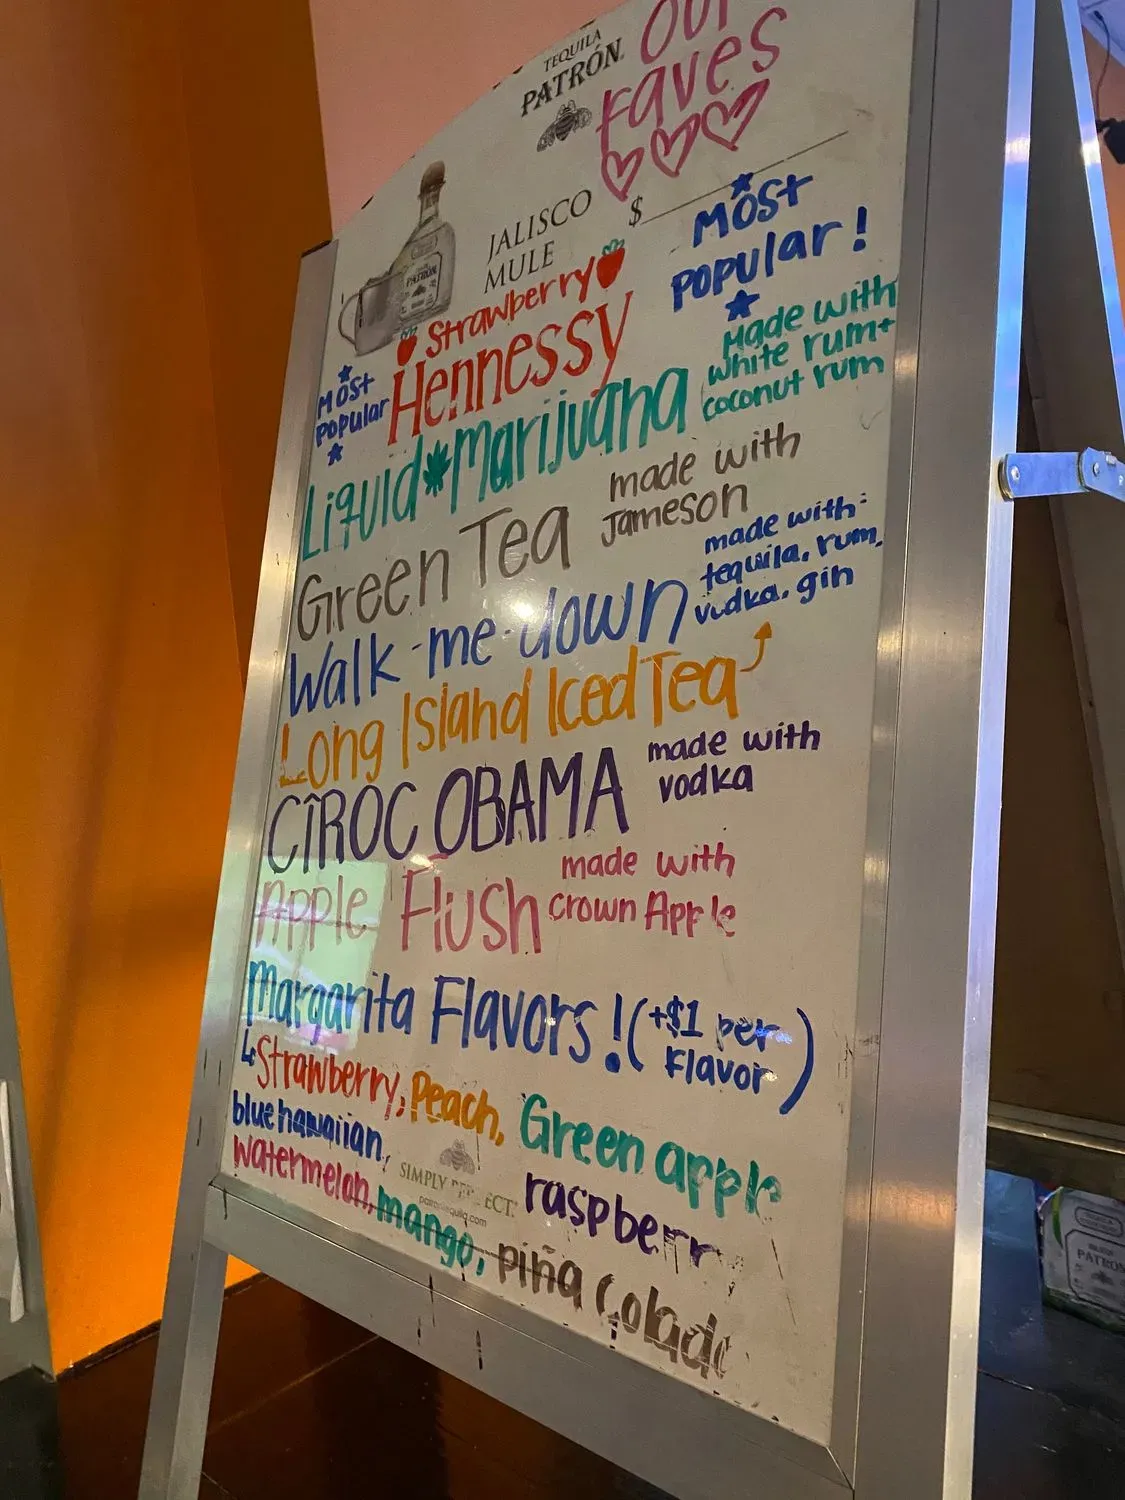 TEQUILA
PATRÓN
our
Faves
JALISCO
MULE
$
Most
Popular!
Strawberry
Hennessy
Most
Popular
Liquid Marijuana
Made with
white rum+
coconut rum
Green Tea
made with
Jameson
Walk-me-down
made with:
tequila, rum,
vodka, gin
Long Island Iced Tea
CIROC OBAMA
made with
vodka
Apple Flush
made with
crown Apple
Margarita Flavors! (+$1 per
Flavor)
Strawberry, Peach, Green apple
blue hawaiian,
raspberr
watermelon, mango, piña colada
SIMPLY PERFECT.
patrontequila.com
PATRÓN
PATRÓN